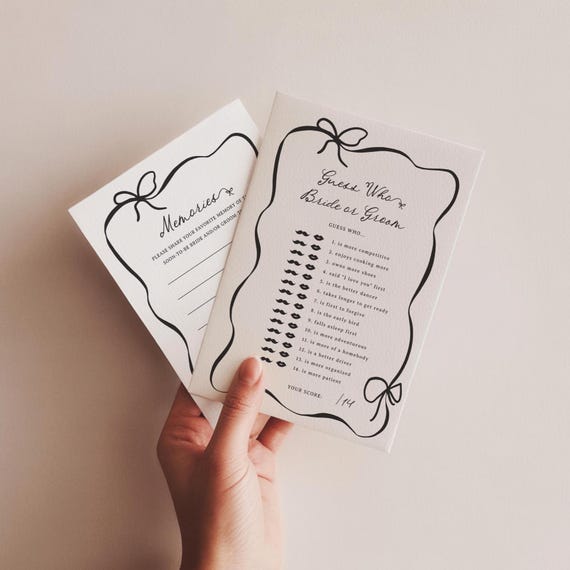 Memories
PLEASE SHARE YOUR FAVORITE MEMORY OF
SOON-TO-BE BRIDE AND/OR GROOM
Guess Who
Bride or Groom
GUESS WHO...
1. is more competitive
2. enjoys cooking more
3. owns more shoes
4. said "I love you" first
5. is the better dancer
6. takes longer to get ready
7. is first to forgive
8. is the early bird
9. falls asleep first
10. is more adventurous
11. is more of a homebody
12. is a better driver
13. is more organized
14. is more patient
YOUR SCORE: /14